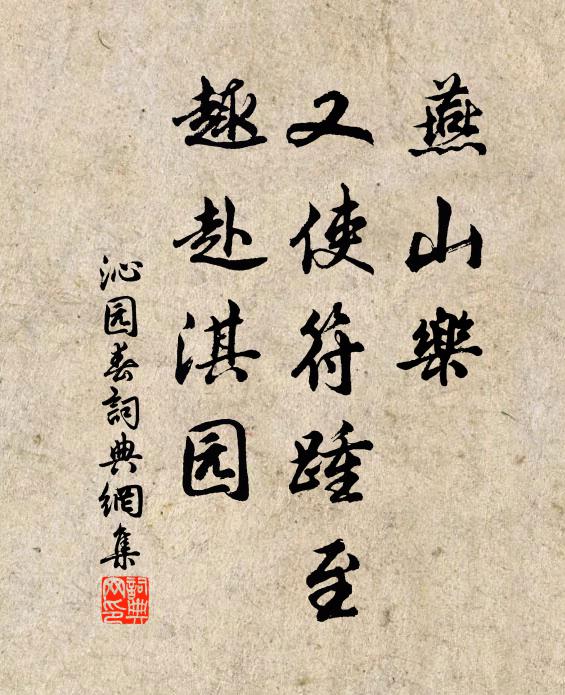 燕山樂
又使符踵至
趣赴淇园
沁园春詞典網集
詞典
网印